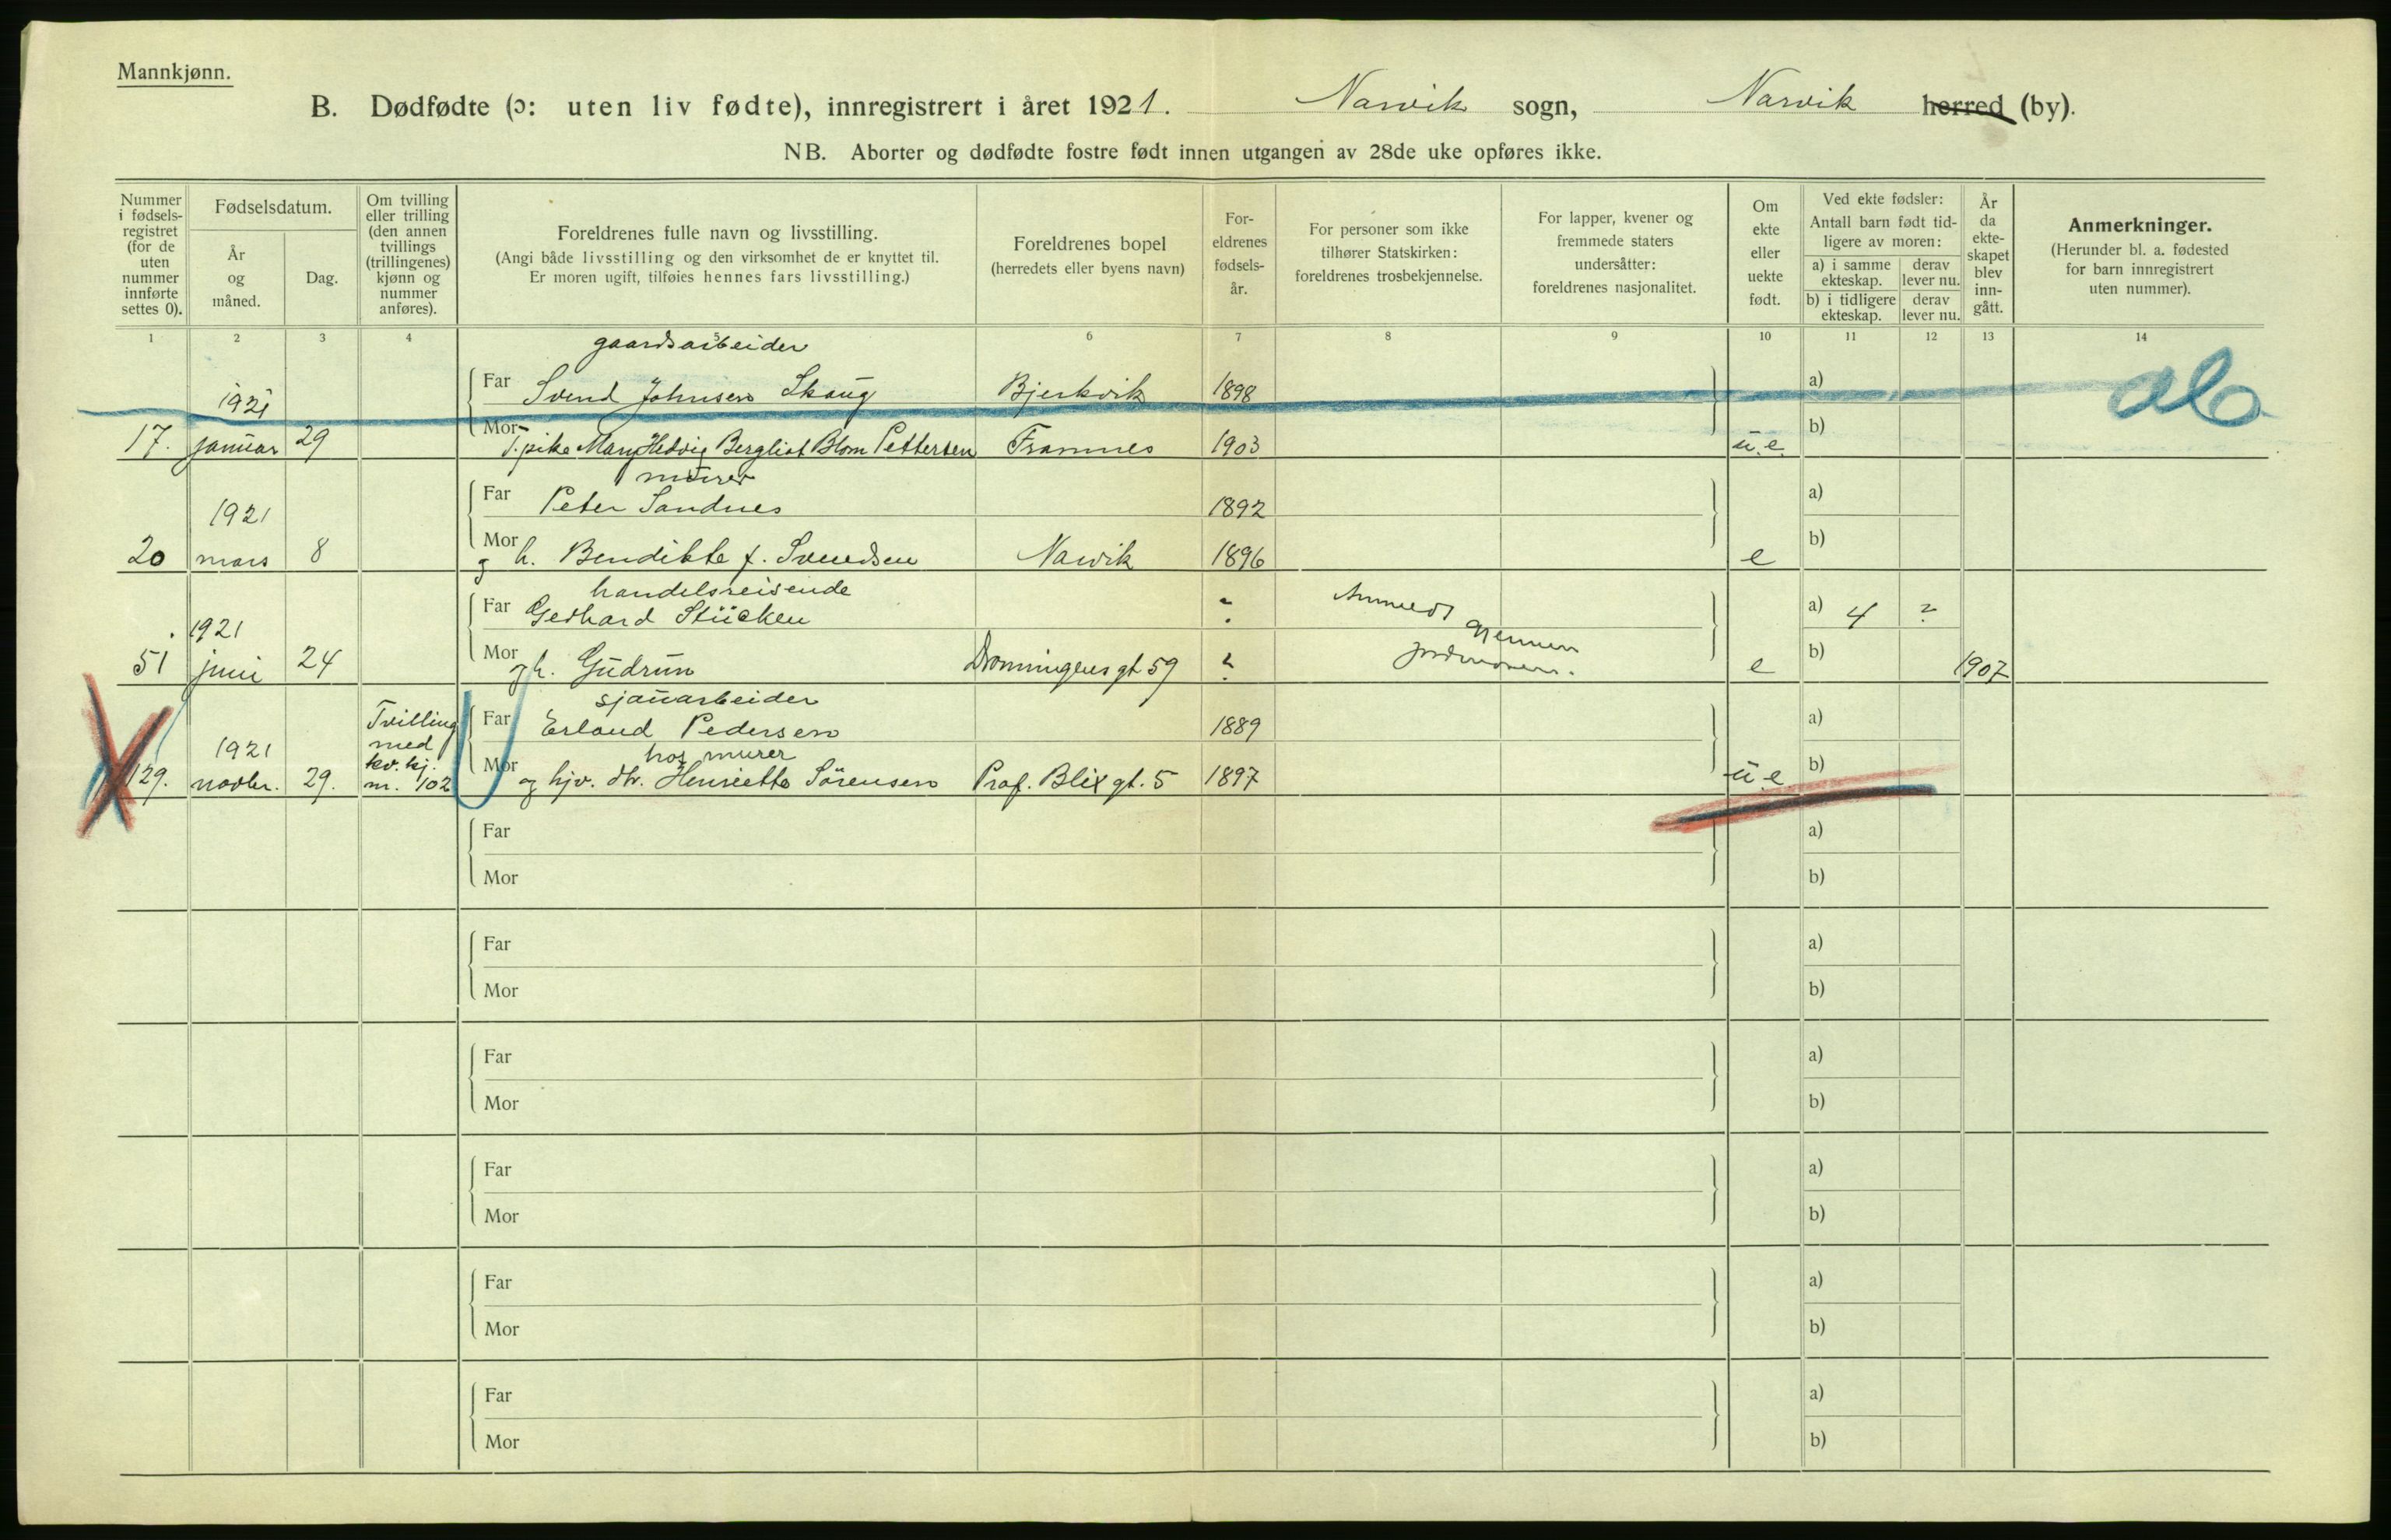 Mannkjønn.
B. Dødfødte (ɔ: uten liv fødte), innregistrert i året 1921. Narvik sogn, Narvik herred (by).
NB. Aborter og dødfødte fostre født innen utgangen av 28de uke opføres ikke.
Nummer
i fødsels-
registret
(for de
uten
nummer
innførte
settes 0).
Fødselsdatum.
År
og
måned.
Dag.
Om tvilling
eller trilling
(den annen
tvillings
(trillingenes)
kjønn og
nummer
anføres).
Foreldrenes fulle navn og livsstilling.
(Angi både livsstilling og den virksomhet de er knyttet til.
Er moren ugift, tilføies hennes fars livsstilling.)
Foreldrenes bopel
(herredets eller byens navn)
For-
eldrenes
fødsels-
år.
For personer som ikke
tilhører Statskirken:
foreldrenes trosbekjennelse.
For lapper, kvener og
fremmede staters
undersåtter:
foreldrenes nasjonalitet.
Om
ekte
eller
uekte
født.
Ved ekte fødsler:
Antall barn født tid-
ligere av moren:
a) i samme
ekteskap.
derav
lever nu.
b) i tidligere
ekteskap.
derav
lever nu.
År
da
ekte-
skapet
blev
inn-
gått.
Anmerkninger.
(Herunder bl. a. fødested
for barn innregistrert
uten nummer).
1 2 3 4 5 6 7 8 9 10 11 12 13 14
gaardsarbeider
Far Svend Johnsen Skaug Bjerkvik 1898 a)
1921
17. januar 29 Mor T.pike Mary Hedvig Bergliot Blom Pettersen Framnes 1903 u.e. b)
murer
Far Peter Sandnes 1892 a)
1921
20 mars 8 Mor g h. Bendikte f. Svendsen Narvik 1896 e b)
handelsreisende
Far Gerhard Stücken ? a) 4 ?
1921
51 juni 24 Mor gh. Gudrun Dronningens gt 59 ? gjennem jordmoren. e b) 1907
sjauarbeider
Tvilling
med
kv. kj.
nr. 102
Far Erland Pedersen 1889 a)
1921
hos murer
129. novbr. 29. Mor og hjv. dtr. Henriette Sörensen Prof. Blix gt. 5 1897 u.e. b)
Far a)
Mor b)
Far a)
Mor b)
Far a)
Mor b)
Far a)
Mor b)
Far a)
Mor b)
Far a)
Mor b)